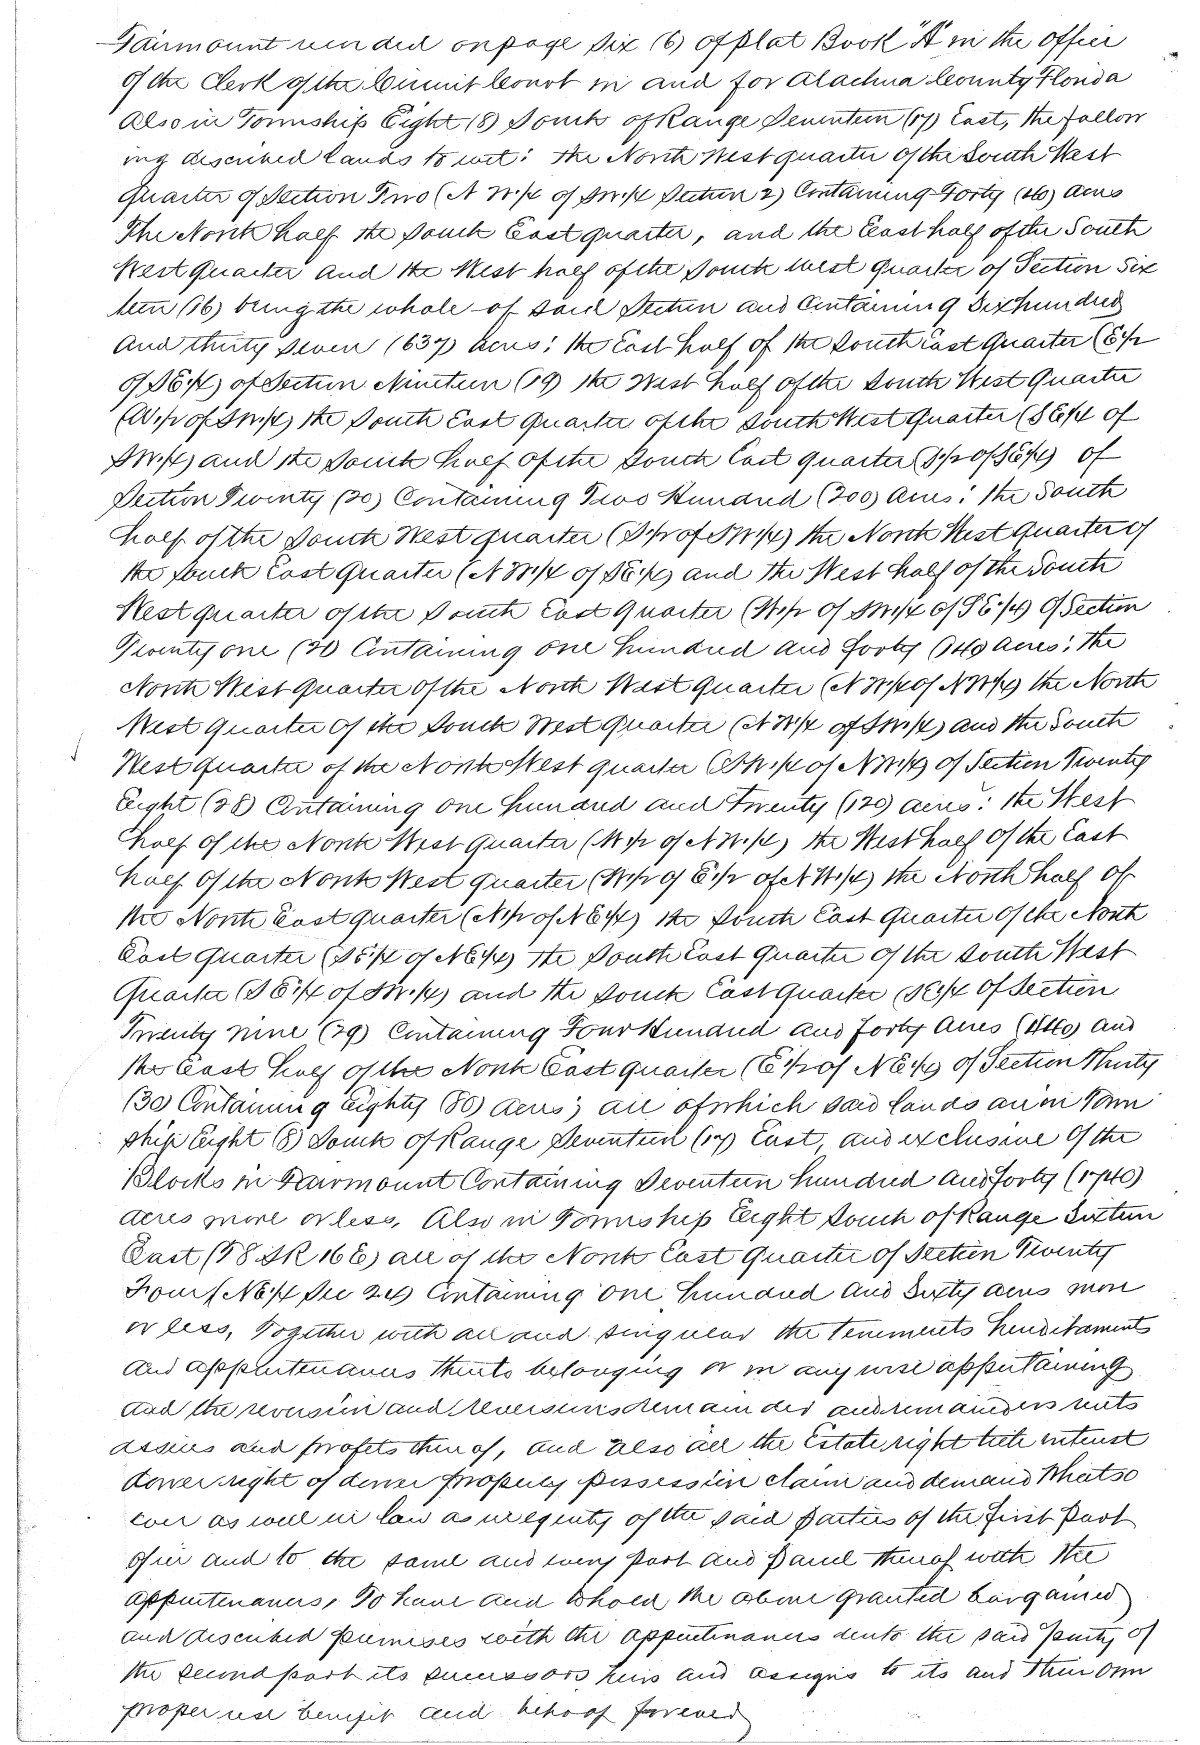 Fairmount recorded on page Six (6) of Plat Book "A" in the Office
of the Clerk of the Circuit Court in and for Alachua County Florida
Also in Township Eight (8) South of Range Seventeen (17) East, the follow
ing described lands to wit: the North West quarter of the South West
quarter of Section Two (N W.1/4 of S.W.1/4 Section 2) Containing Forty (40) acres
The North half the South East quarter, and the East half of the South
West Quarter and the West half of the South West quarter of Section Six
teen (16) being the whole of said Section and Containing Six hundred
and thirty seven (637) acres: the East half of the South East Quarter (E.1/2
of S.E.1/4) of Section Nineteen (19) the West half of the South West Quarter
(W.1/2 of S.W.1/4) the South East Quarter of the South West Quarter (S E.1/4 of
S.W.1/4) and the South half of the South East quarter (S.1/2 of S.E.1/4) of
Section Twenty (20) Containing Two Hundred (200) acres: the South
half of the South West quarter (S.1/2 of S.W.1/4) the North West Quarter of
the South East Quarter (N W.1/4 of S.E.1/4) and the West half of the South
West quarter of the South East Quarter (W.1/2 of S.W.1/4 of S E.1/4) of Section
Twenty one (21) Containing one hundred and forty (140) acres: the
North West Quarter of the North West Quarter (N W.1/4 of N W.1/4) the North
West Quarter of the South West Quarter (N W.1/4 of S.W.1/4) and the South
West quarter of the North West quarter (S.W.1/4 of N W.1/4) of Section Twenty
Eight (28) Containing one hundred and Twenty (120) acres: the West
half of the North West Quarter (W.1/2 of N W.1/4) the West half of the East
half of the North West quarter (W.1/2 of E.1/2 of N W.1/4) the North half of
the North East quarter (N.1/2 of N E.1/4) the South East Quarter of the North
East Quarter (S E.1/4 of N E.1/4) the South East Quarter of the South West
Quarter (S E.1/4 of S.W.1/4) and the South East Quarter (S E.1/4 of Section
Twenty nine (29) Containing Four Hundred and forty acres (440) and
the East half of the North East quarter (E.1/2 of N E.1/4) of Section Thirty
(30) Containing Eighty (80) acres; all of which said lands are in Town
ship Eight (8) South of Range Seventeen (17) East, and exclusive of the
Blocks in Fairmount Containing Seventeen hundred and forty (1740)
acres more or less, Also in Township Eight South of Range Sixteen
East (T 8 S R 16 E) all of the North East Quarter of Section Twenty
Four (N E.1/4 Sec 24) Containing one hundred and Sixty acres more
or less, Together with all and singular the tenements hereditaments
and appurtenances thereto belonging or in any wise appertaining
and the reversion and reversions remainder and remainders rents
issues and profits thereof, and also all the Estate right title interest
dower right of dower property possession claim and demand Whatso
ever as well in law as in equity of the said parties of the first Part
of in and to the same and every part and parcel thereof with the
appurtenances, To have and to hold the above granted bargained
and described premises with the appurtenances unto the said party of
the second part its successors heirs and assigns to its and their own
proper use benefit and behoof forever